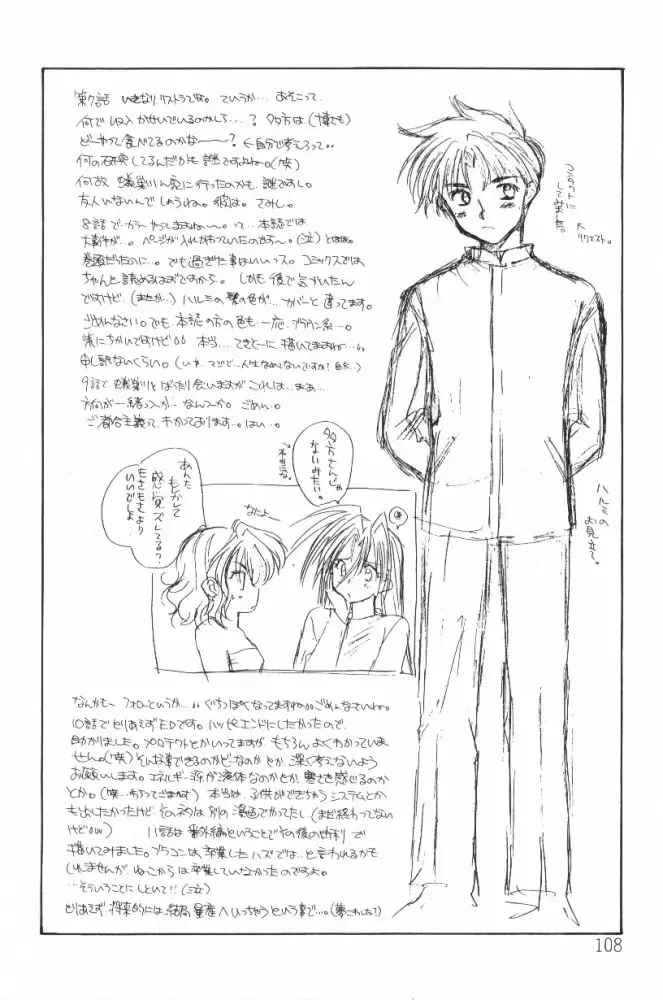 第7話 いきなりリストラですよ。ていうか…あそこって
何で収入かせいでいるのかしら…?夕方は(博士も)
どーやって食べてるのかな———?←自分で考えろって…
何の研究してるんだかも謎ですよねー。(笑)
何故、蟻巣川ん家に行ったのかも、謎ですし。
友人いないんでしょうかね。彼は。さみし。
8話で…カラーやってますねー。って…本誌では
大事件が…。ページが入れかわっていたのだす〜。(泣)とほほ。
巻頭だったのに…。でも過ぎた事はいいっス。コミックスでは
ちゃんと読めるはずですから。しかも後で気がいたん
ですけど、(またか…)ハルミの髪の色が…カバーと違ってます。
ごめんなさい。でも、本誌の方の色も一応、ブラウン系…。
紫にちかいですけど 本当…てきとーに描いてますねー…
申し訳ないくらい。(いや、マジで…人生なめてないですか?自分…)
9話で蟻巣川とばったり会いますが これは…まあ…
方向が一緒っつーか…なんつーか。ごめん。
ご都合主義ってわかっております…。はい…。
コミケットに
してみた。
リクエスト。
ハルミの
お見立て。
夕方さんじゃ
ないみたい。
↑本当ね。
あんた
もしかして
感覚ズレてる?
もさもさより
いいでしょ
なによー
なんかも〜フォローというか…ぐちっぽくなってますね…ごめんなさいね。
10話でとりあえずEDです。ハッピーエンドにしたかったので、
助かりました。プロテクトとかいってますが、もちろんよくわかっていま
せん。(笑)そんな事できるのかどーなのかとか、深く考えないよう
お願いします。エネルギー源が液体なのかとか、寒さを感じるのか
とか。(笑…ちょってごまかす)本当は、子供ができちゃうシステムとか
も出したかったけど、そのネタは別の漫画でかってたし、(まだ終わってない
けど…)11話は番外編ということでその後の世界で
描いてみました。ブラコンは、卒業したハズでは…と言われるかも
しれませんが、ねっこからは卒業していなかったのですよ。
…そういうことにしといて!!(泣)
とりあえず、将来的には、結局、量産へいっちゃうという事で…。(夢こわした?)
108